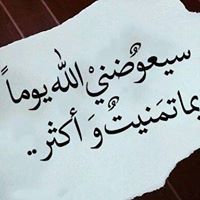 سيعوضنيْ الله يوماً
بما تمَنيتُ وَ أكثر ..